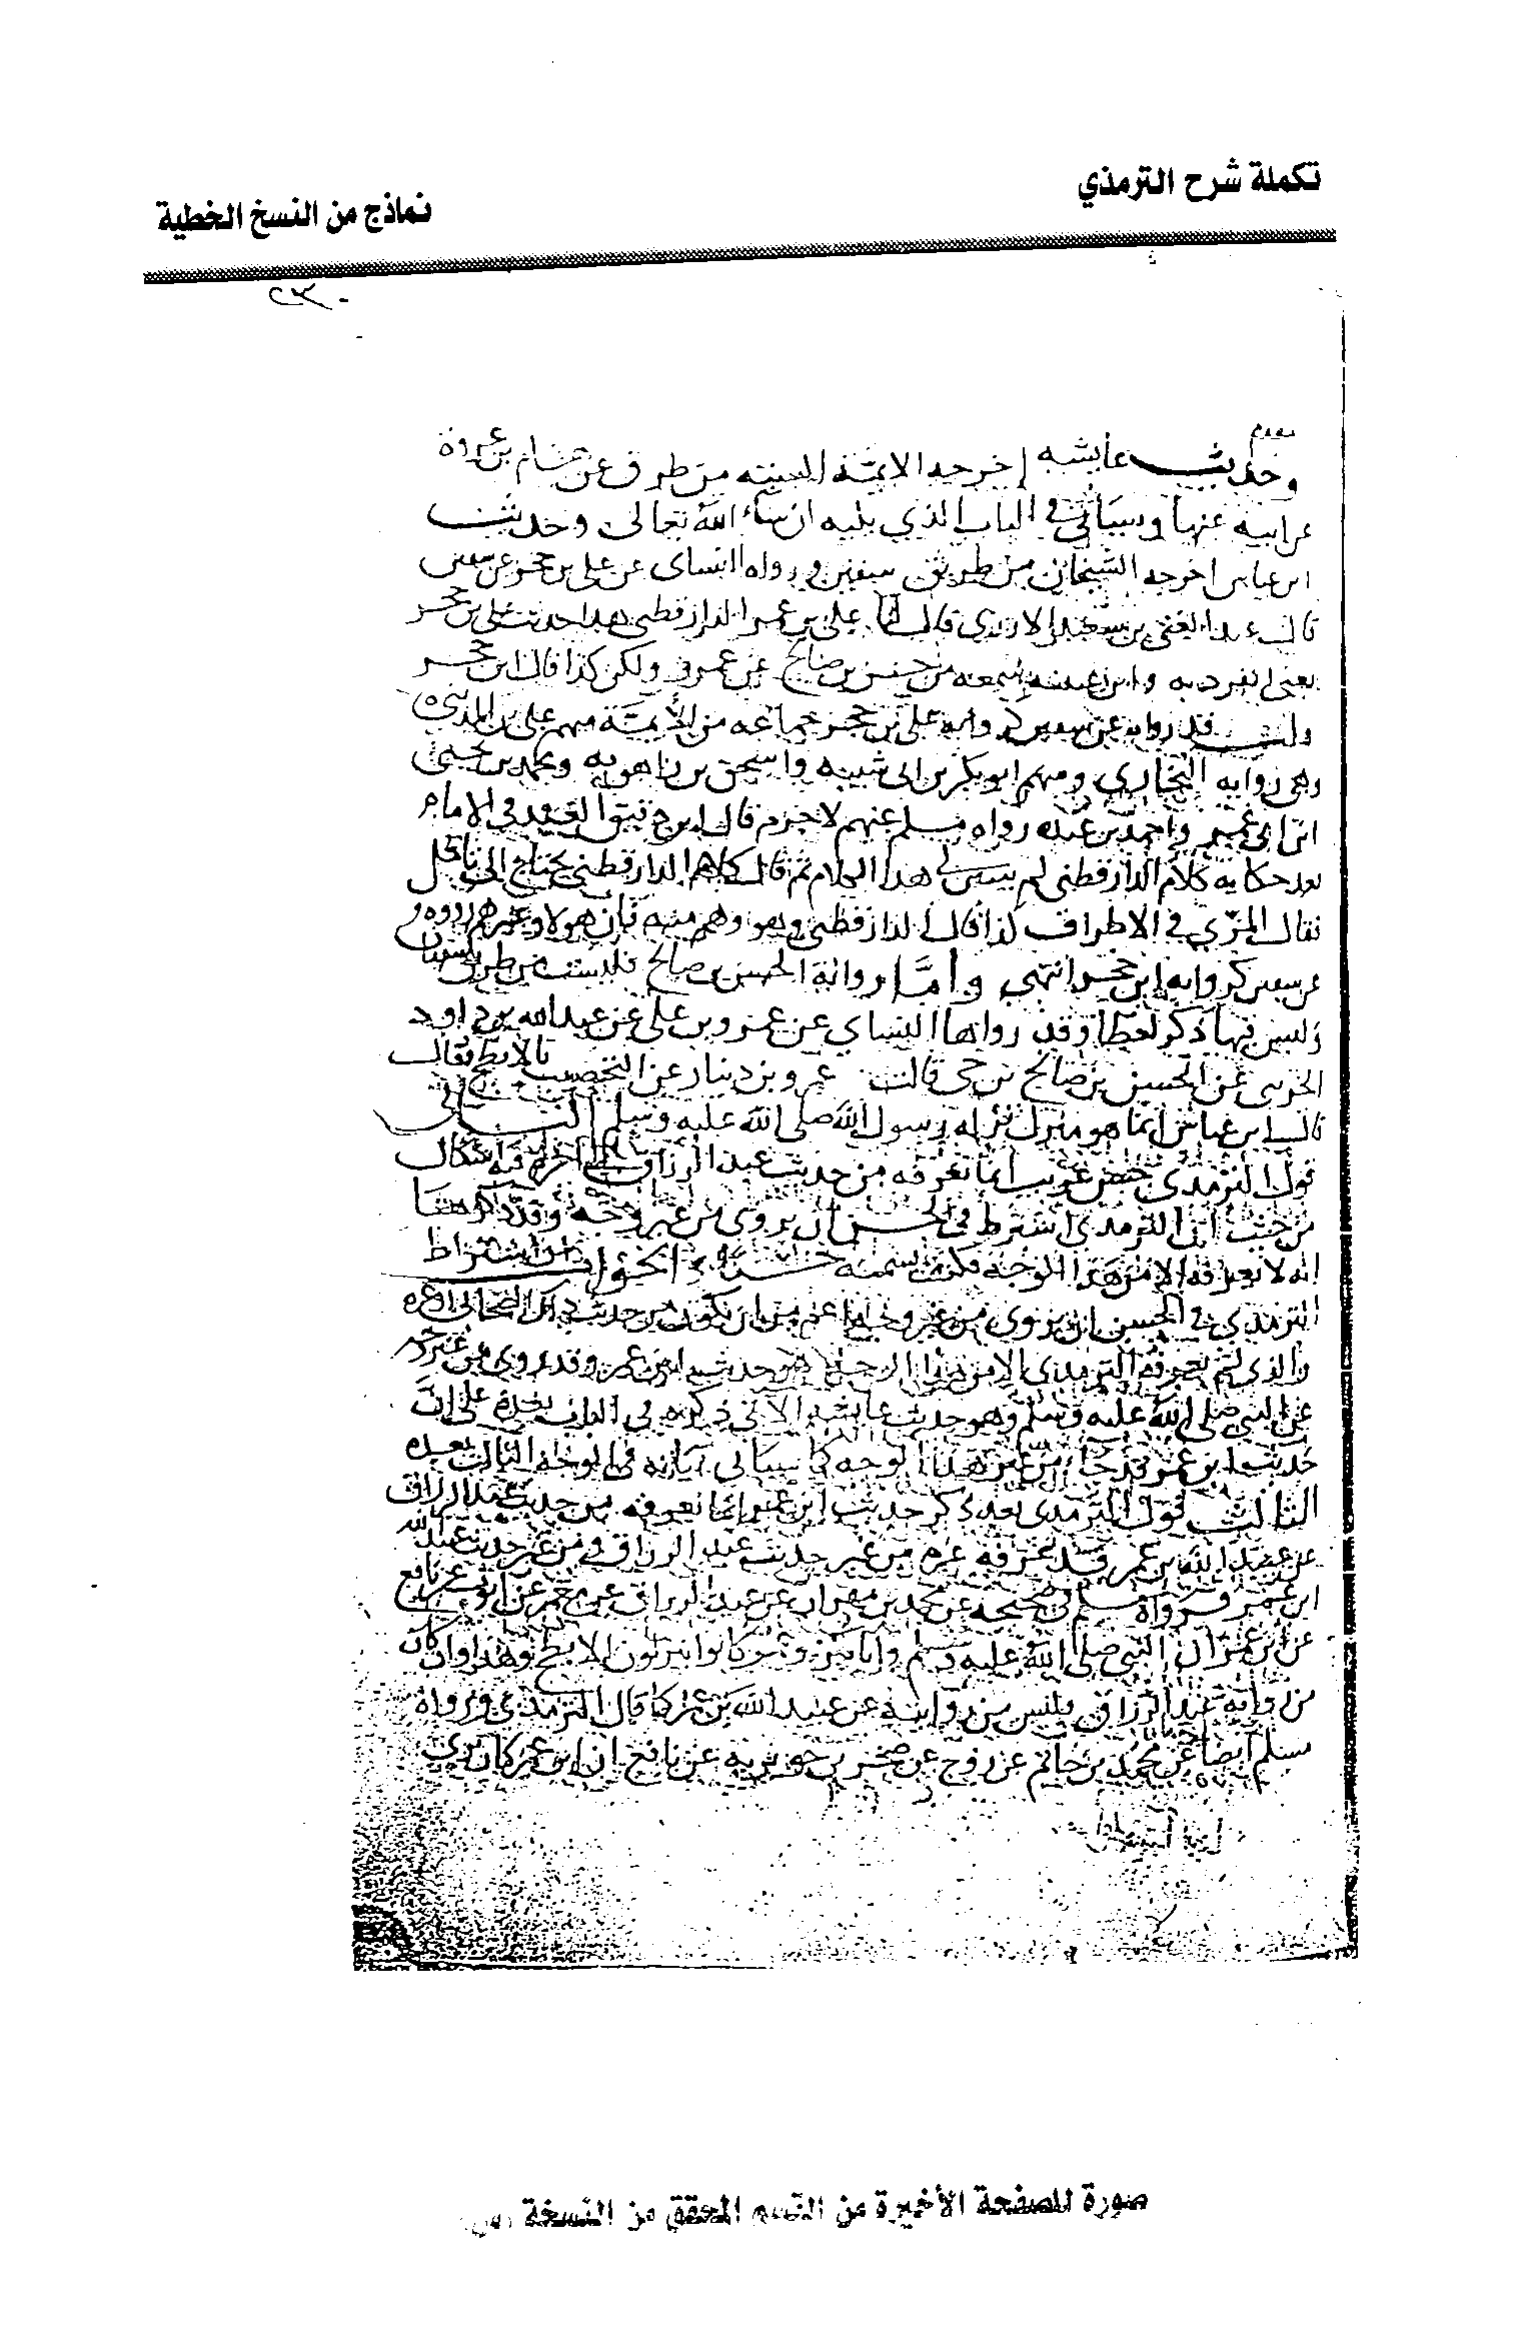 تكملة شرح الترمذي
نماذج من النسخ الخطية
٢٣٠
وحديث عايشه اخرجه الايمة الستة من طرق عن هشام بن عروة
عن ابيه عنها وسياتي في الباب الذي يليه ان شاء الله تعالى وحديث
ابن عباس اخرجه الشيخان من طريق سفين ورواه النساى عن على بن حجر عن سفين
قال عبد الغني بن سعيد الازدي قال لنا على بن عمر الدارقطنى هذا حديث على بن حجر
يعنى انفرد به وابن عيينه سمعه من حسن بن صالح عن عمرو ولكن كذا قال ابن حجر
قلت قد رواه عن سفين كروايه على بن حجر جماعه من الأيمّة منهم على بن المديني
وهى روايه البخاري ومنهم ابو بكر بن ابى شيبه واسحق بن راهويه ومحمد بن يحيى
ابن ابى عمر واحمد بن عبده رواه مسلم عنهم لاجرم قال ابن دقيق العيد فى الامام
بعد حكايه كلام الدارقطنى لم يتبين لى هذا الكلام ثم قال كلام الدارقطنى يحتاج الى تاويل
فقال المزي في الاطراف كذا قال الدارقطنى وهو وهم منه فان هولا وغيرهم رووه
عن سفين كروايه ابن حجر انتهى وأمّا رواية الحسن بن صالح فليست من طريق سفيان
وليس فيها ذكر لعطا وقد رواها النساى عن عمرو بن على عن عبد الله بن داود
الخريبى عن الحسن بن صالح بن حى قالت عمرو بن دينار عن التحصيب بالابطح فقال
قال ابن عباس انما هو منزل نزله رسول الله صلى الله عليه وسلم الثانى
قول الترمذى حسن غريب انما نعرفه من حديث عبد الرزاق الى اخره فيه اشكال
من حيث ان الترمذى اشترط فى الحسن ان يروى من غير وجه وقد ذكر هنا
انه لا يعرفه الا من هذا الوجه فكيف يسميه حسنا والجواب ان اشتراط
الترمذي في الحسن ان يروى من غير وجه اعم من ان يكون من حديث ذلك الصحابى او غيره
والذى لم يعرفه الترمذى الا من هذا الوجه هو حديث ابن عمر وقد روى من غير وجه
عن النبي صلى الله عليه وسلم وهو حديث عايشه الاتى ذكره في الباب بعده على انّ
حديث ابن عمر قد جاء من غير هذا الوجه كما سياتى بيانه فى الوجه الثالث بعده
الثالث قول الترمذى بعد ذكر حديث ابن عمر انما نعرفه من حديث عبد الرزاق
عن عبيد الله بن عمر قد عرفه غيره من غير حديث عبد الرزاق و من غير حديث عبيد الله
ابن عمر فرواه مسلم فى صحيحه عن محمد بن مهران عن عبد الرزاق عن معمر عن ايوب عن نافع
عن ابن عمر ان النبي صلى الله عليه وسلم وابا بكر وعمر كانوا ينزلون الابطح وهذا وان كان
من رواية عبد الرزاق فليس من روايته عن عبيد الله بن عمر كما قال الترمذى ورواه
مسلم ايضا عن محمد بن حاتم عن روح عن صخر بن جويريه عن نافع ان ابن عمر كان يرى
صورة للصفحة الأخيرة من القسم المحقق من النسخة